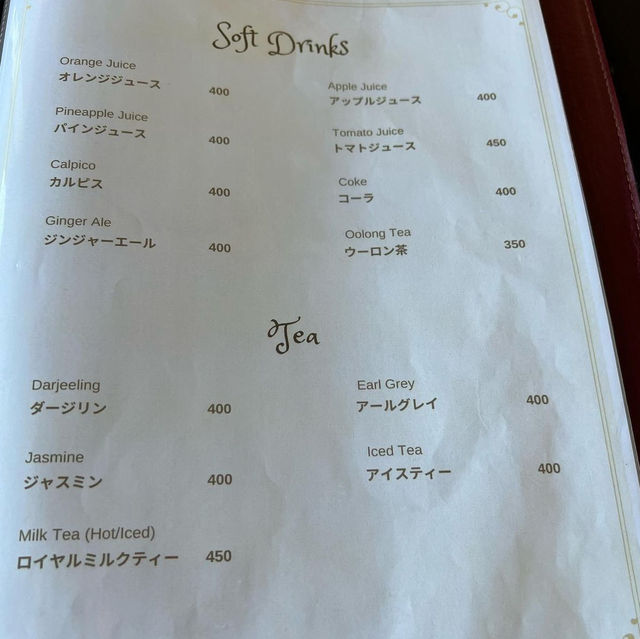 Soft Drinks
Orange Juice
オレンジジュース 400
Apple Juice
アップルジュース 400
Pineapple Juice
パインジュース 400
Tomato Juice
トマトジュース 450
Calpico
カルピス 400
Coke
コーラ 400
Ginger Ale
ジンジャーエール 400
Oolong Tea
ウーロン茶 350
Tea
Darjeeling
ダージリン 400
Earl Grey
アールグレイ 400
Jasmine
ジャスミン 400
Iced Tea
アイスティー 400
Milk Tea (Hot/Iced)
ロイヤルミルクティー 450